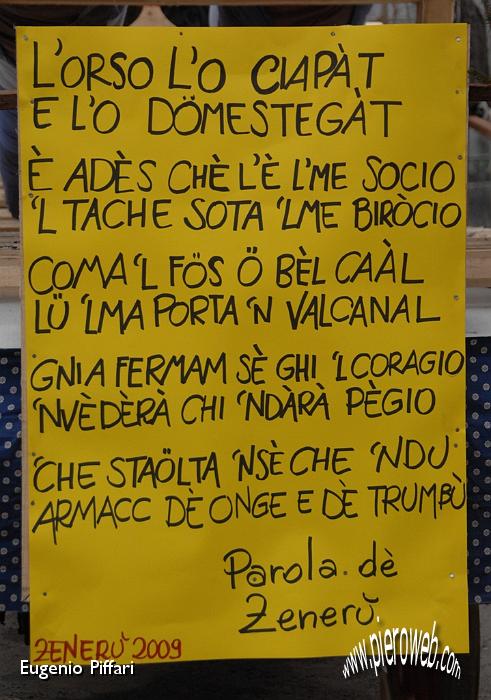 L'ORSO L'O CIAPÀT
E L'O DÖMESTEGÀT
È ADÈS CHÈ L'È L'ME SOCIO
'L TACHE SOTA 'LME BIRÒCIO
COMA 'L FÖS Ö BÈL CAÀL
LÜ 'LMA PORTA 'N VALCANAL
GNIA FERMAM SÈ GHI 'L CORAGIO
'NVÈDÈRÀ CHI 'NDÀRÀ PÈGIO
'CHE STAÖLTA 'NSÈ CHE 'NDU
ARMACC DÈ ONGE E DÈ TRUMBÙ
Parola. dè
Zenerù.
ZENERÙ 2009
Eugenio Piffari
www.pieroweb.com